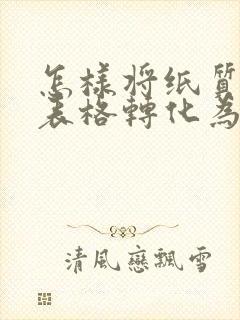 怎樣將纸質
表格轉化為
清風戀飄雪